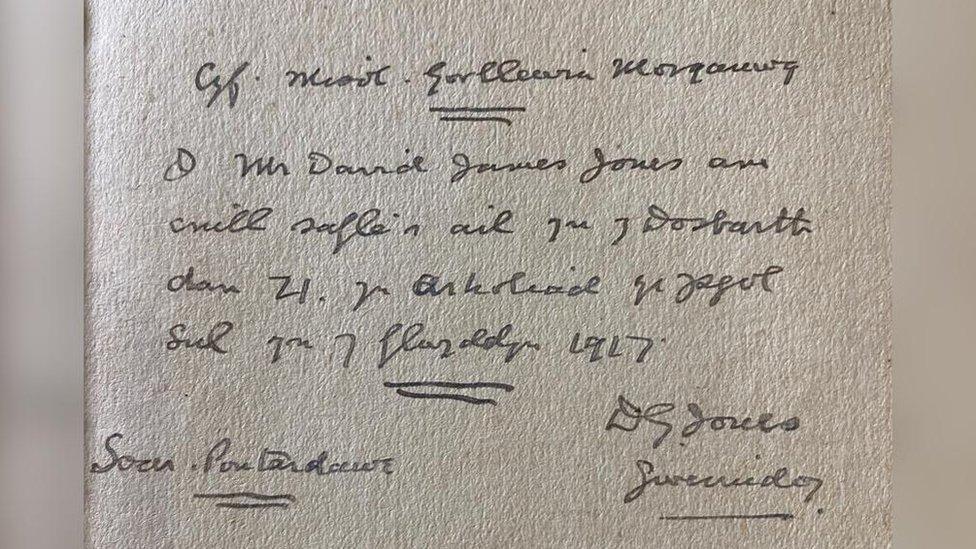 Cyf. Misol. Gorllewin Morganwg
I Mr David James Jones am
ennill safle'r ail yn y Dosbarth
dan 21. yn Arholiad yr Ysgol
Sul yn y flwyddyn 1917.
DG Jones
Soar. Pontardawe
Gweinidog.